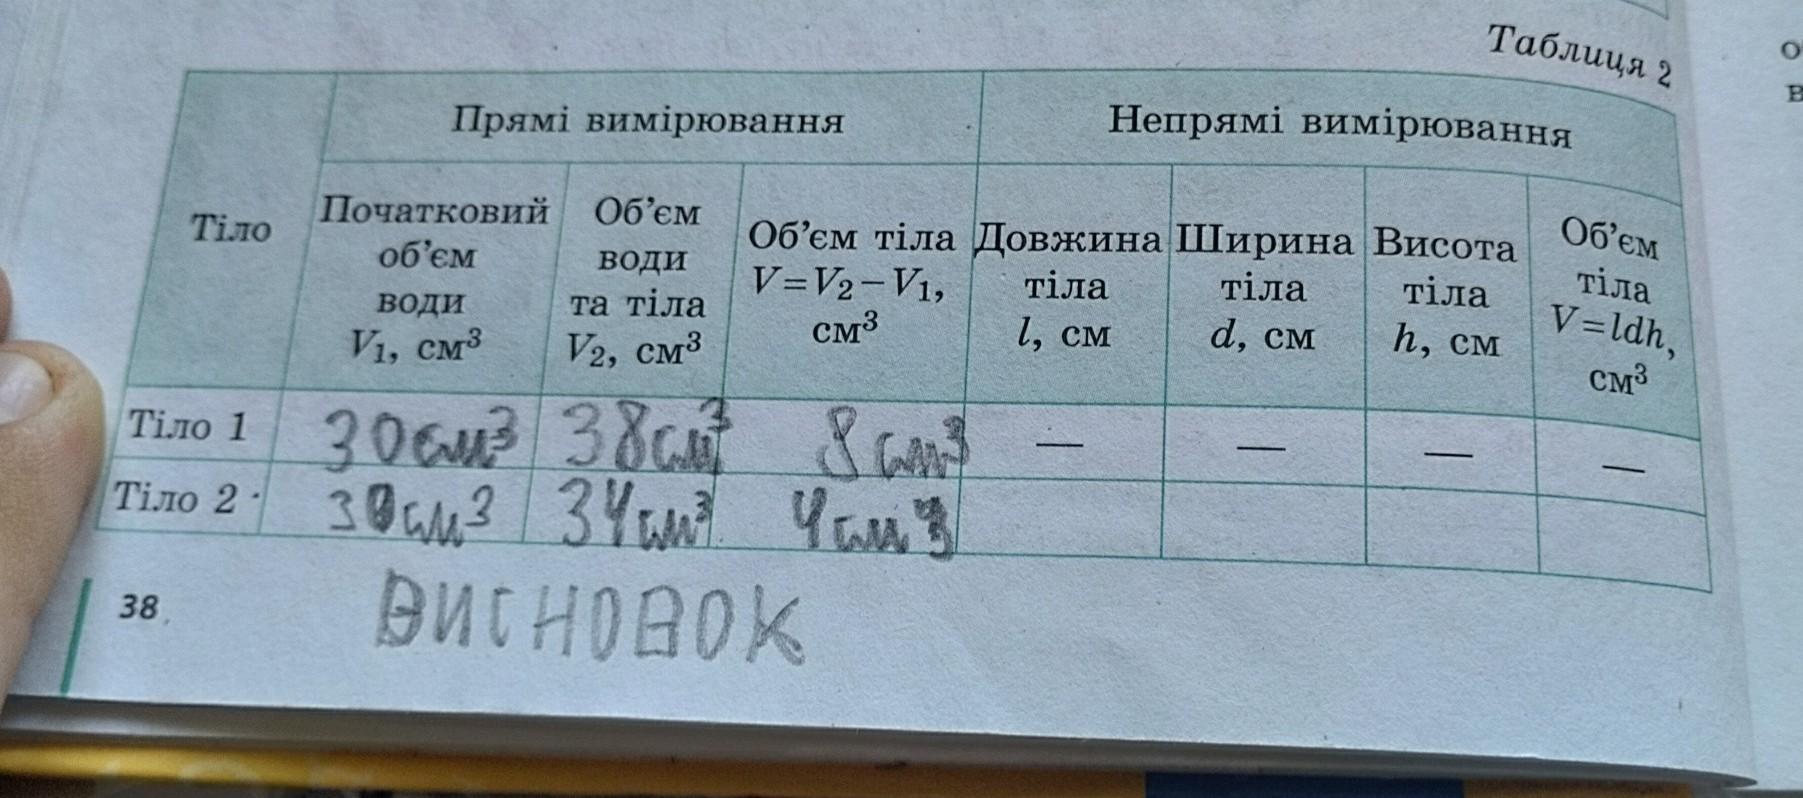 Таблиця 2
Тіло
Прямі вимірювання
Непрямі вимірювання
Початковий
об'єм
води
V₁, см³
Об'єм
води
та тіла
V₂, см³
Об'єм тіла
V=V₂−V₁,
см³
Довжина
тіла
l, см
Ширина
тіла
d, см
Висота
тіла
h, см
Об'єм
тіла
V=ldh,
см³
Тіло 1 30см³ 38см³ 8см³ — — — —
Тіло 2 30см³ 34см³ 4см³
38
ВИСНОВОК